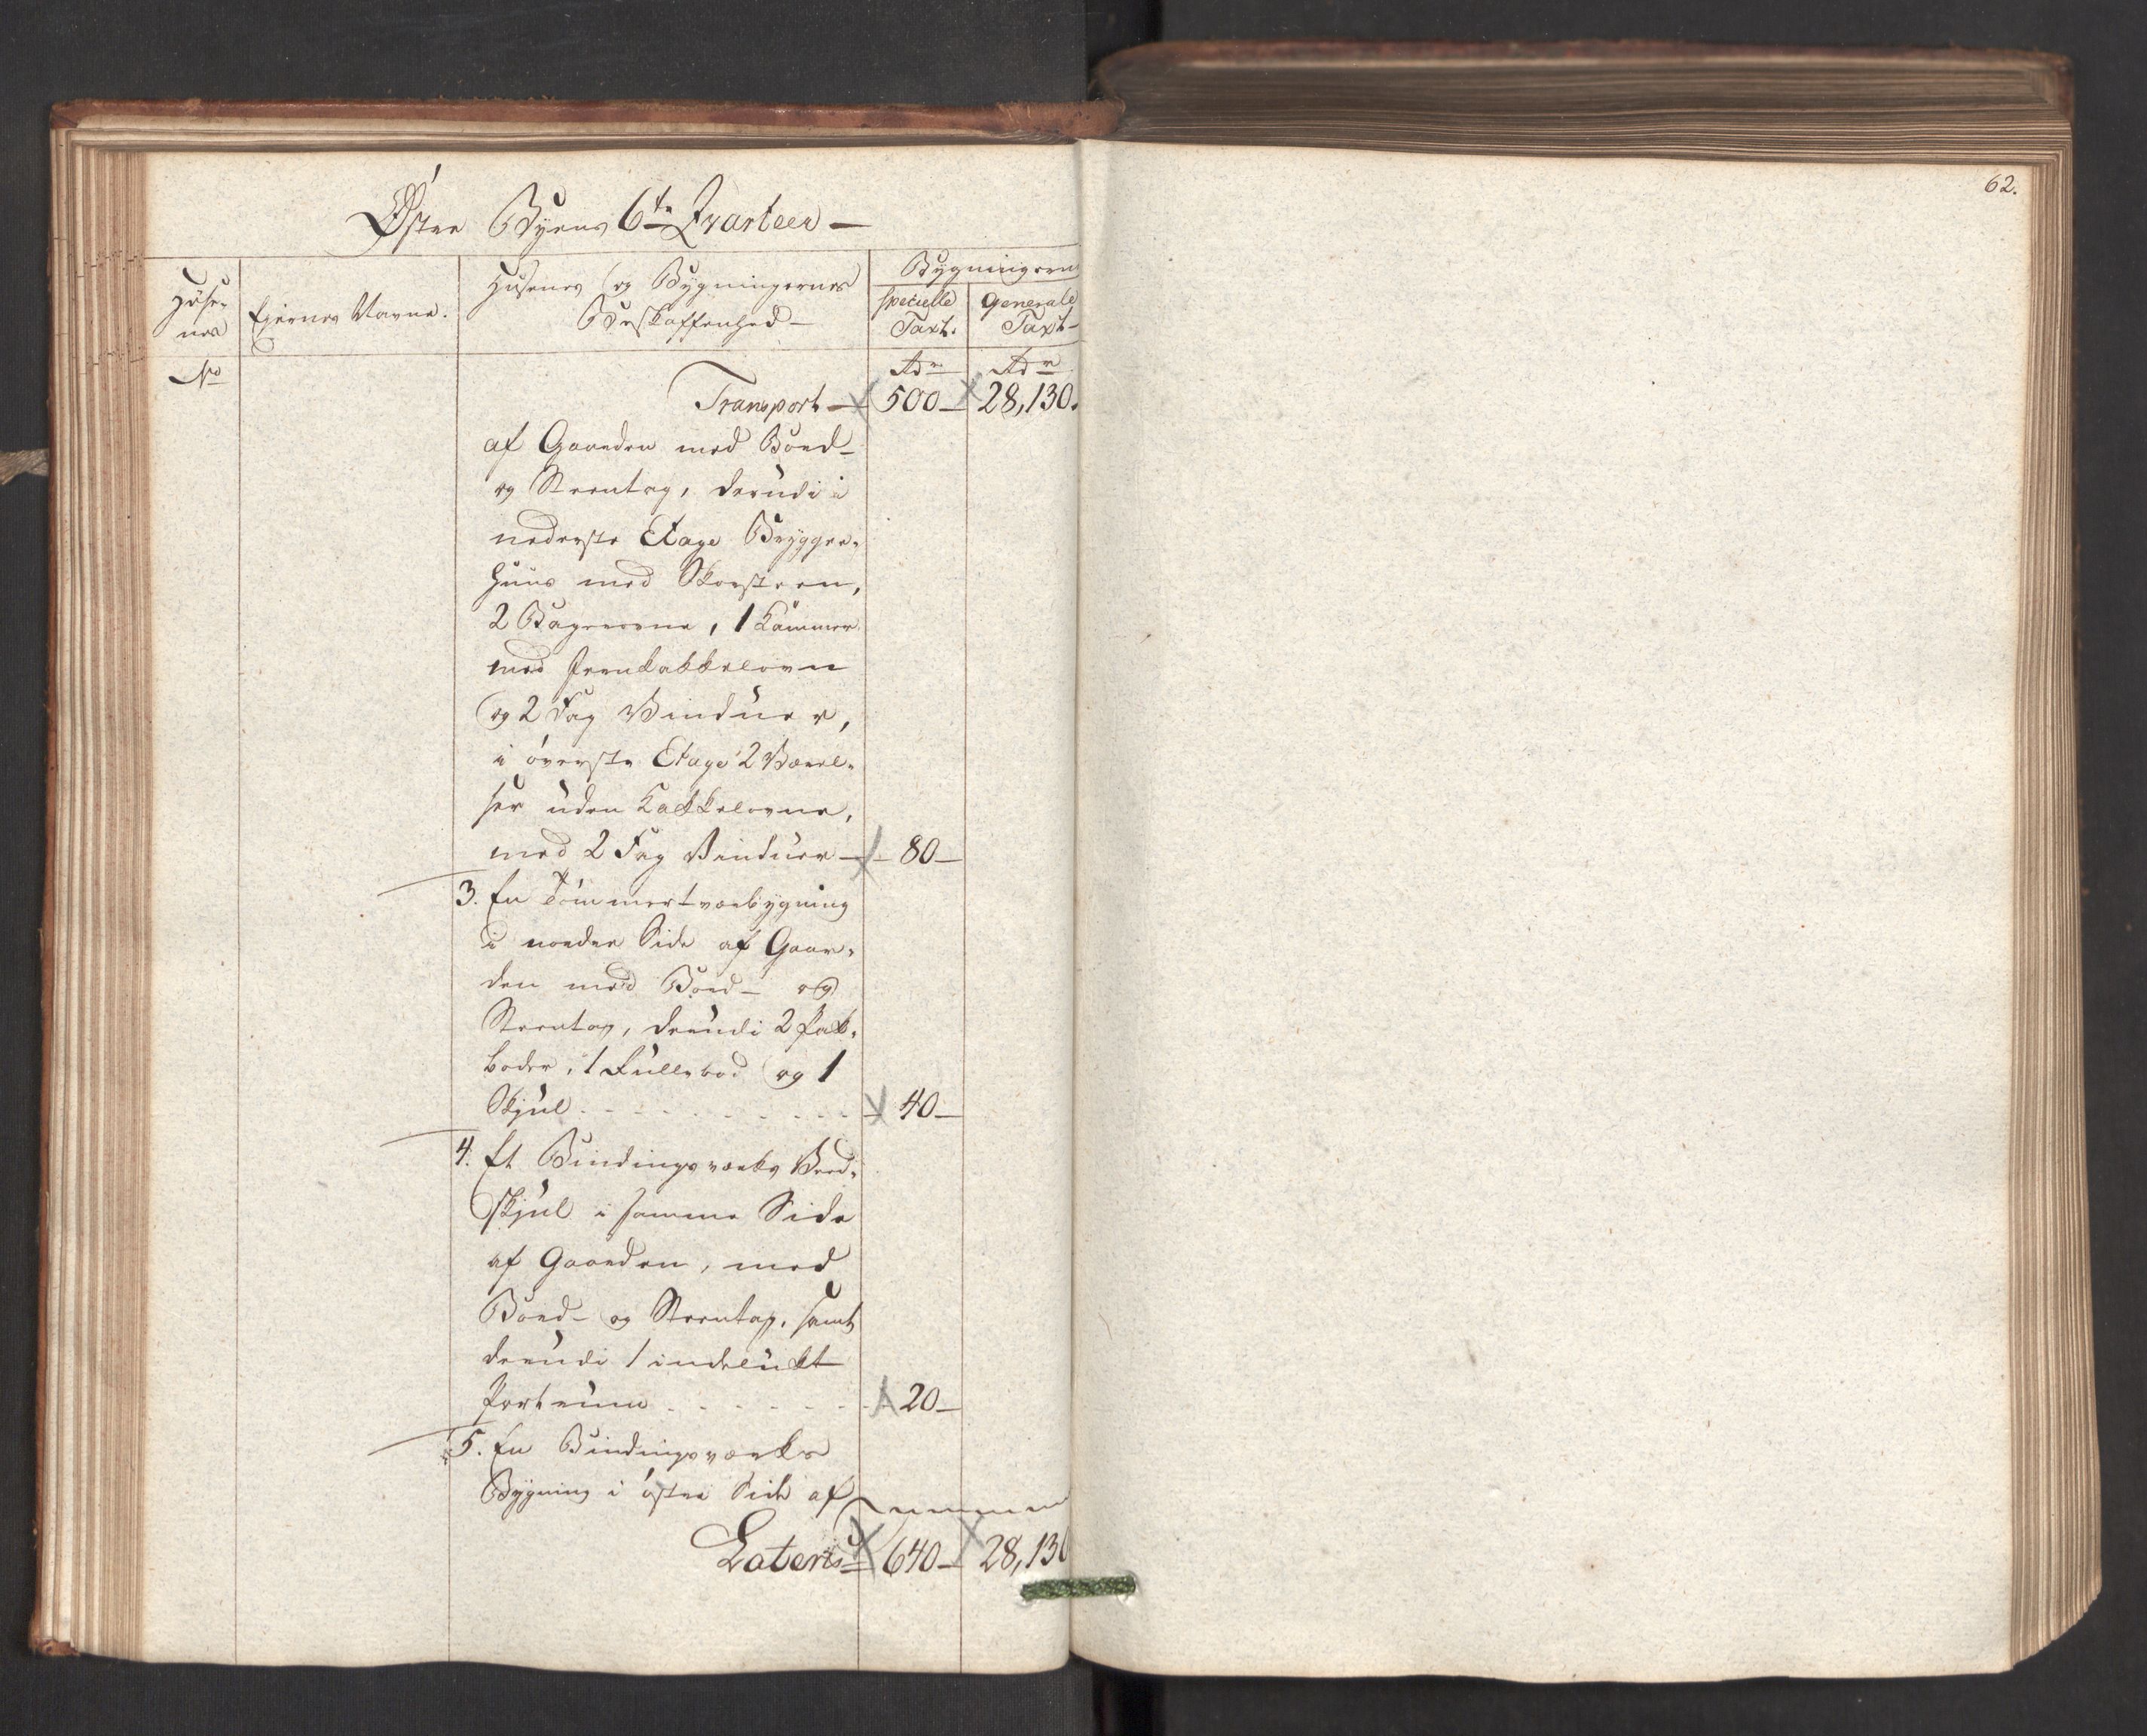 62.
Østre Byens 6te Qvarteer —
Huse-
nes
Ejernes Navne.
Husenes og Bygningernes
Beskaffenhed —
Bygningern
specielle
Taxt.
Generale
Taxt —
No
Rdr Rdr
Transport — 500 — 28,130.
af Gaarden med Bord-
og Steentag, derudi i
nederste Etage Brygger-
huus med Skorsteen,
2 Bagerovne, 1 Kammer
med Jernkakkelovn
og 2 Fag Vinduer,
i øverste Etage 2 Værel-
ser uden Kakkelovne,
med 2 Fag Vinduer — 80 —
3. En Tømmertværbygning
i nordre Side af Gaar-
den med Bord- og
Steentag, derudi 2 Pak-
boder, 1 Rullebod og 1
Skjul - - - 40 —
4. Et Bindingsværks Bred-
skjul i samme Side
af Gaarden, med
Bord- og Steentag, samt
derudi 1 indelukt
Portrum - - - 20 —
5. En Bindingsværks
Bygning i østre Side af
Lateris 640 — 28,130